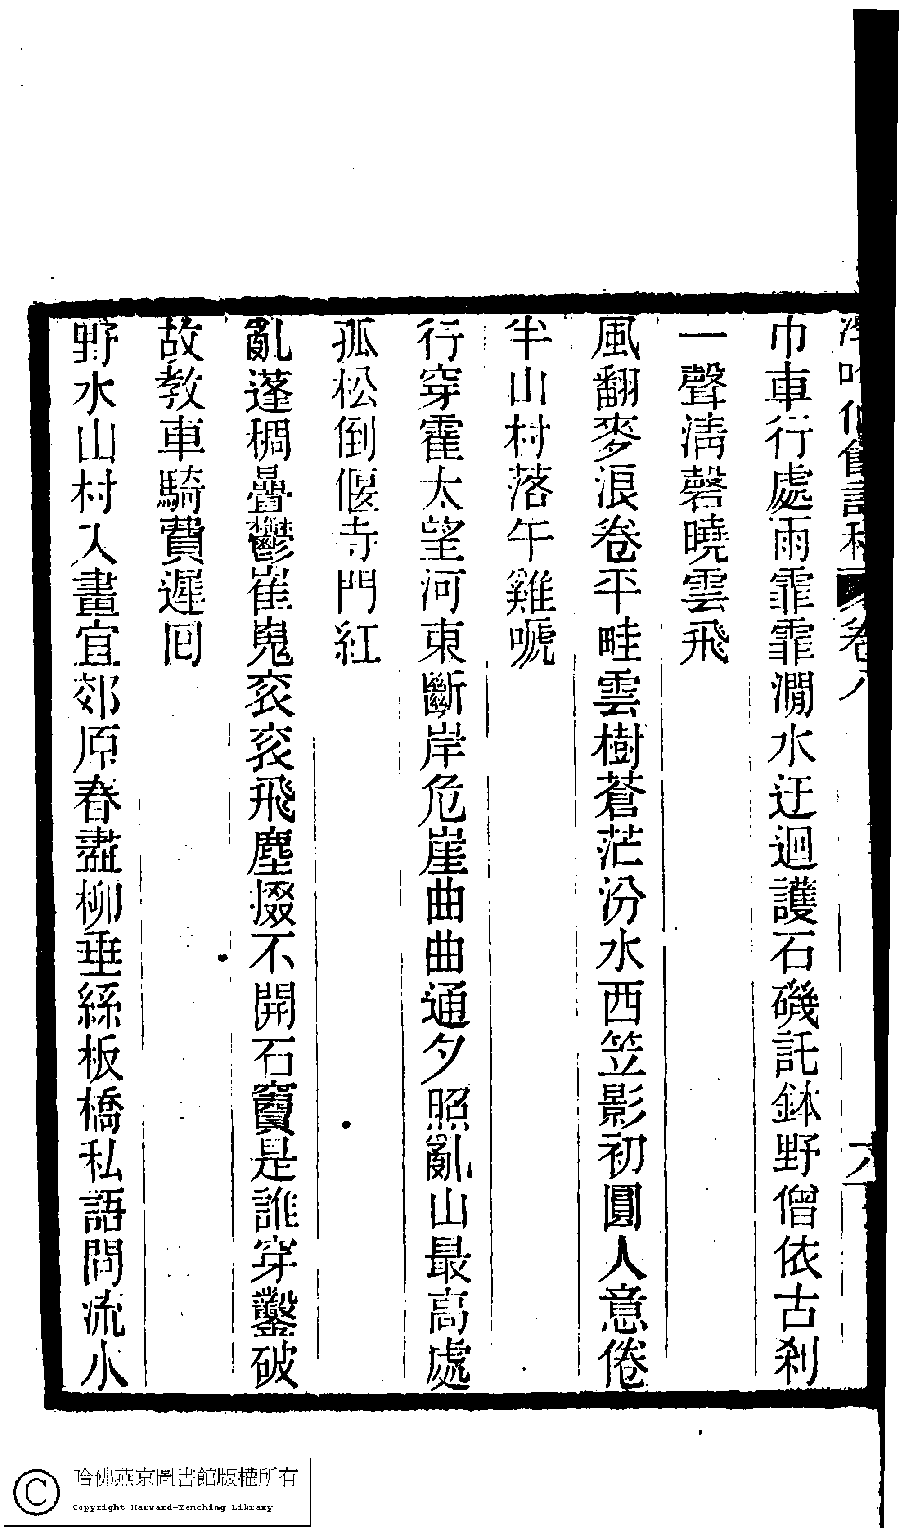 巾車行處雨霏霏澗水迂迴護石磯託鉢野僧依古刹
一聲淸磬曉雲飛
風翻麥浪卷平畦雲樹蒼茫汾水西笠影初圓人意倦
半山村落午雞嗁
行穿霍太望河東斷岸危崖曲曲通夕照亂山最高處
孤松倒偃寺門紅
亂蓬稠疊鬱崔嵬衮衮飛塵掇不開石竇是誰穿鑿破
故敎車騎費遲回
野水山村入畫宜郊原春盡柳垂絲板橋私語問流水
哈佛燕京圖書館版權所有
Copyright Harvard-Yenching Library